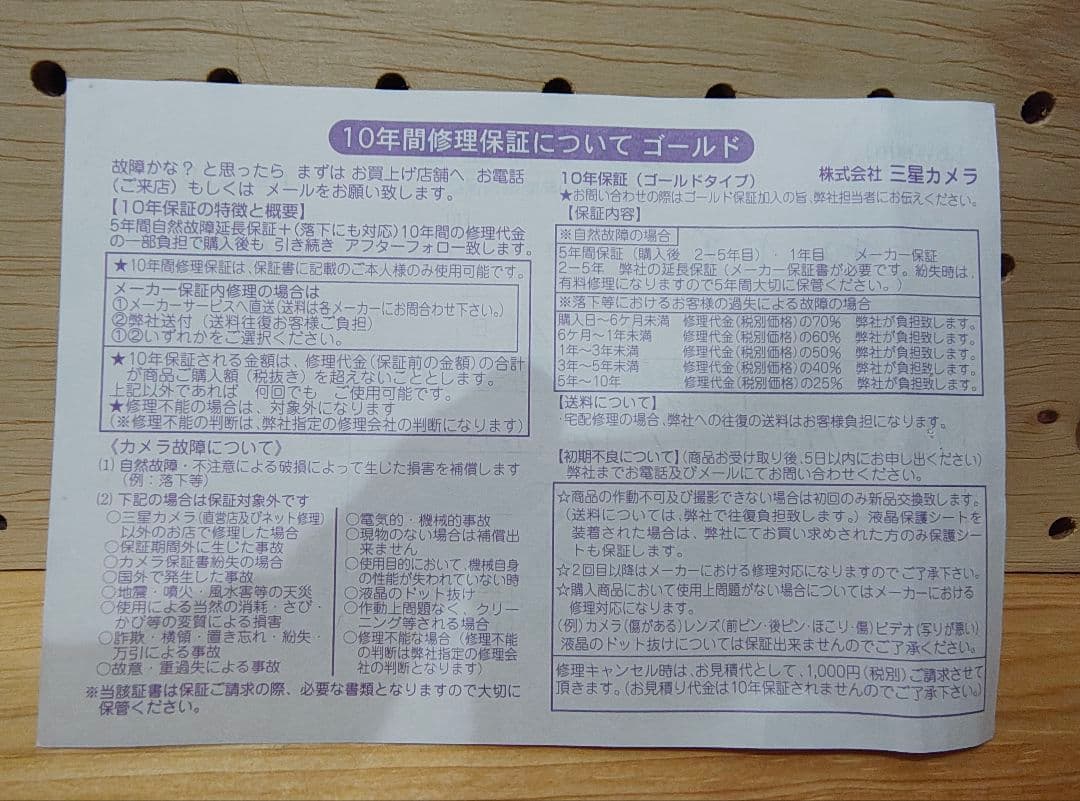 10年間修理保証について ゴールド
故障かな？ と思ったら まずは お買上げ店舗へ お電話
(ご来店) もしくは メールをお願い致します。
【10年保証の特徴と概要】
5年間自然故障延長保証＋(落下にも対応)10年間の修理代金
の一部負担で購入後も 引き続き アフターフォロー致します。
★10年間修理保証は、保証書に記載のご本人様のみ使用可能です。
メーカー保証内修理の場合は
①メーカーサービスへ直送(送料は各メーカーにお問合わせ下さい。)
②弊社送付 (送料往復お客様ご負担)
①②いずれかをご選択ください。
★10年保証される金額は、修理代金(保証前の金額)の合計
が商品ご購入額 (税抜き) を超えないこととします。
上記以外であれば 何回でも ご使用可能です。
★修理不能の場合は、対象外になります
(※修理不能の判断は、弊社指定の修理会社の判断になります)
《カメラ故障について》
(1) 自然故障・不注意による破損によって生じた損害を補償します
(例：落下等)
(2) 下記の場合は保証対象外です
○三星カメラ(直営店及びネット修理)
以外のお店で修理した場合
○保証期間外に生じた事故
○カメラ保証書紛失の場合
○国外で発生した事故
○地震・噴火・風水害等の天災
○使用による当然の消耗・さび・
かび等の変質による損害
○詐欺・横領・置き忘れ・紛失・
万引による事故
○故意・重過失による事故
○電気的・機械的事故
○現物のない場合は補償出
来ません
○使用目的において、機械自身
の性能が失われていない時
○液晶のドット抜け
○作動上問題なく、クリー
ニング等される場合
○修理不能な場合 (修理不能
の判断は弊社指定の修理会
社の判断となります)
※当該証書は保証ご請求の際、必要な書類となりますので大切に
保管ください。
10年保証 (ゴールドタイプ) 株式会社 三星カメラ
★お問い合わせの際はゴールド保証加入の旨、弊社担当者にお伝えください。
【保証内容】
※自然故障の場合
5年間保証 (購入後 2－5年目)・ 1年目 メーカー保証
2－5年 弊社の延長保証 (メーカー保証書が必要です。紛失時は、
有料修理になりますので5年間大切に保管ください。)
※落下等におけるお客様の過失による故障の場合
購入日～6ケ月未満 修理代金(税別価格)の70% 弊社が負担致します。
6ケ月～1年未満 修理代金(税別価格)の60% 弊社が負担致します。
1年～3年未満 修理代金(税別価格)の50% 弊社が負担致します。
3年～5年未満 修理代金(税別価格)の40% 弊社が負担致します。
5年～10年 修理代金(税別価格)の25% 弊社が負担致します。
【送料について】
・宅配修理の場合、弊社への往復の送料はお客様負担になります。
【初期不良について】(商品お受け取り後、5日以内にお申し出ください)
弊社までお電話及びメールにてお問い合わせください。
☆商品の作動不可及び撮影できない場合は初回のみ新品交換致します。
(送料については、弊社で往復負担致します。) 液晶保護シートを
装着された場合は、弊社にてお買い求めされた方のみ保護シー
トも保証します。
☆2回目以降はメーカーにおける修理対応になりますので ご了承下さい。
☆購入商品において使用上問題がない場合についてはメーカーにおける
修理対応になります。
(例) カメラ(傷がある) レンズ(前ピン・後ピン・ほこり・傷) ビデオ (写りが悪い)
液晶のドット抜けについては保証出来ませんのでご了承ください。
修理キャンセル時は、お見積代として、1,000円(税別) ご請求させて
頂きます。(お見積り代金は10年保証されませんのでご了承下さい。)